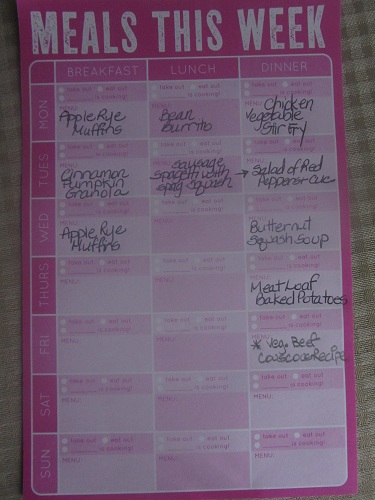 MEALS THIS WEEK
BREAKFAST LUNCH DINNER
MON
take out eat out
is cooking!
MENU:
Apple Rye
Muffins
take out eat out
is cooking!
MENU:
Bean
Burrito
take out eat out
is cooking!
MENU:
Chicken
Vegetable
Stir Fry
TUES
take out eat out
is cooking!
Cinnamon
Pumpkin
Granola
take out eat out
sausage
spagetti with
spag squash
take out eat out
is cooking!
→ Salad of Red
Pepper
WED
take out eat out
is cooking!
Apple Rye
Muffins
take out eat out
is cooking!
MENU:
take out eat out
is cooking!
MENU:
Butternut
Squash Soup
THURS
take out eat out
is cooking!
MENU:
take out eat out
is cooking!
MENU:
take out eat out
is cooking!
MENU:
Meat Loaf
Baked Potatoes
FRI
take out eat out
is cooking!
MENU:
take out eat out
is cooking!
MENU:
take out eat out
is cooking!
MENU:
* Veg. Beef
Couscous Recipe
SAT
take out eat out
is cooking!
MENU:
take out eat out
is cooking!
MENU:
take out eat out
is cooking!
MENU:
SUN
take out eat out
is cooking!
MENU:
take out eat out
is cooking!
MENU:
take out eat out
is cooking!
MENU: